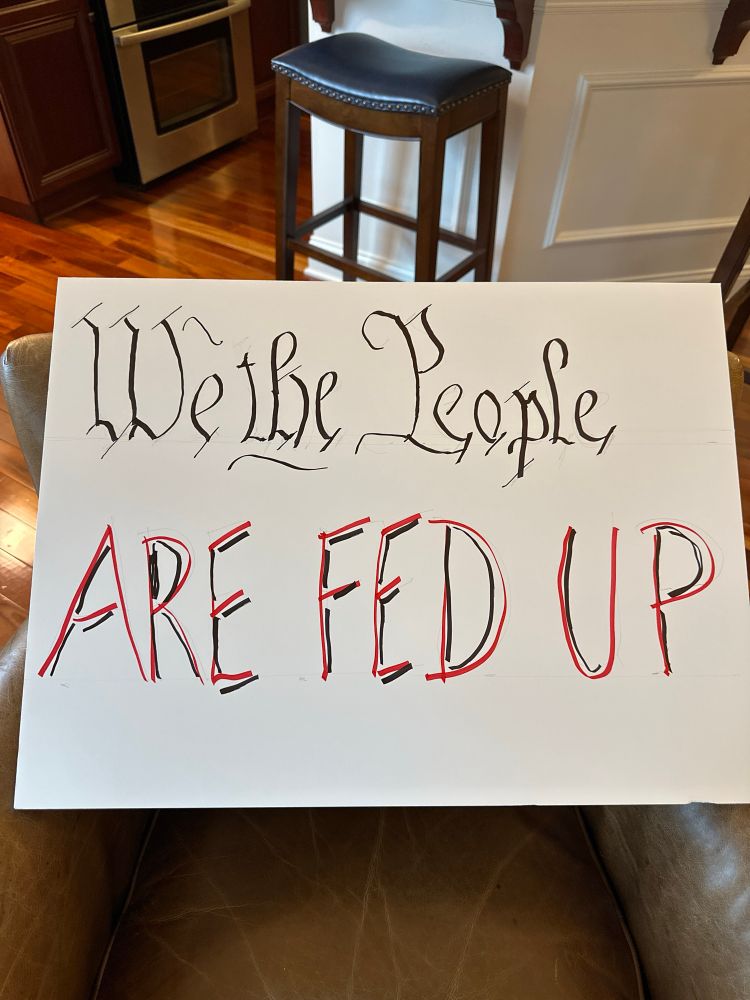 We the People
ARE FED UP